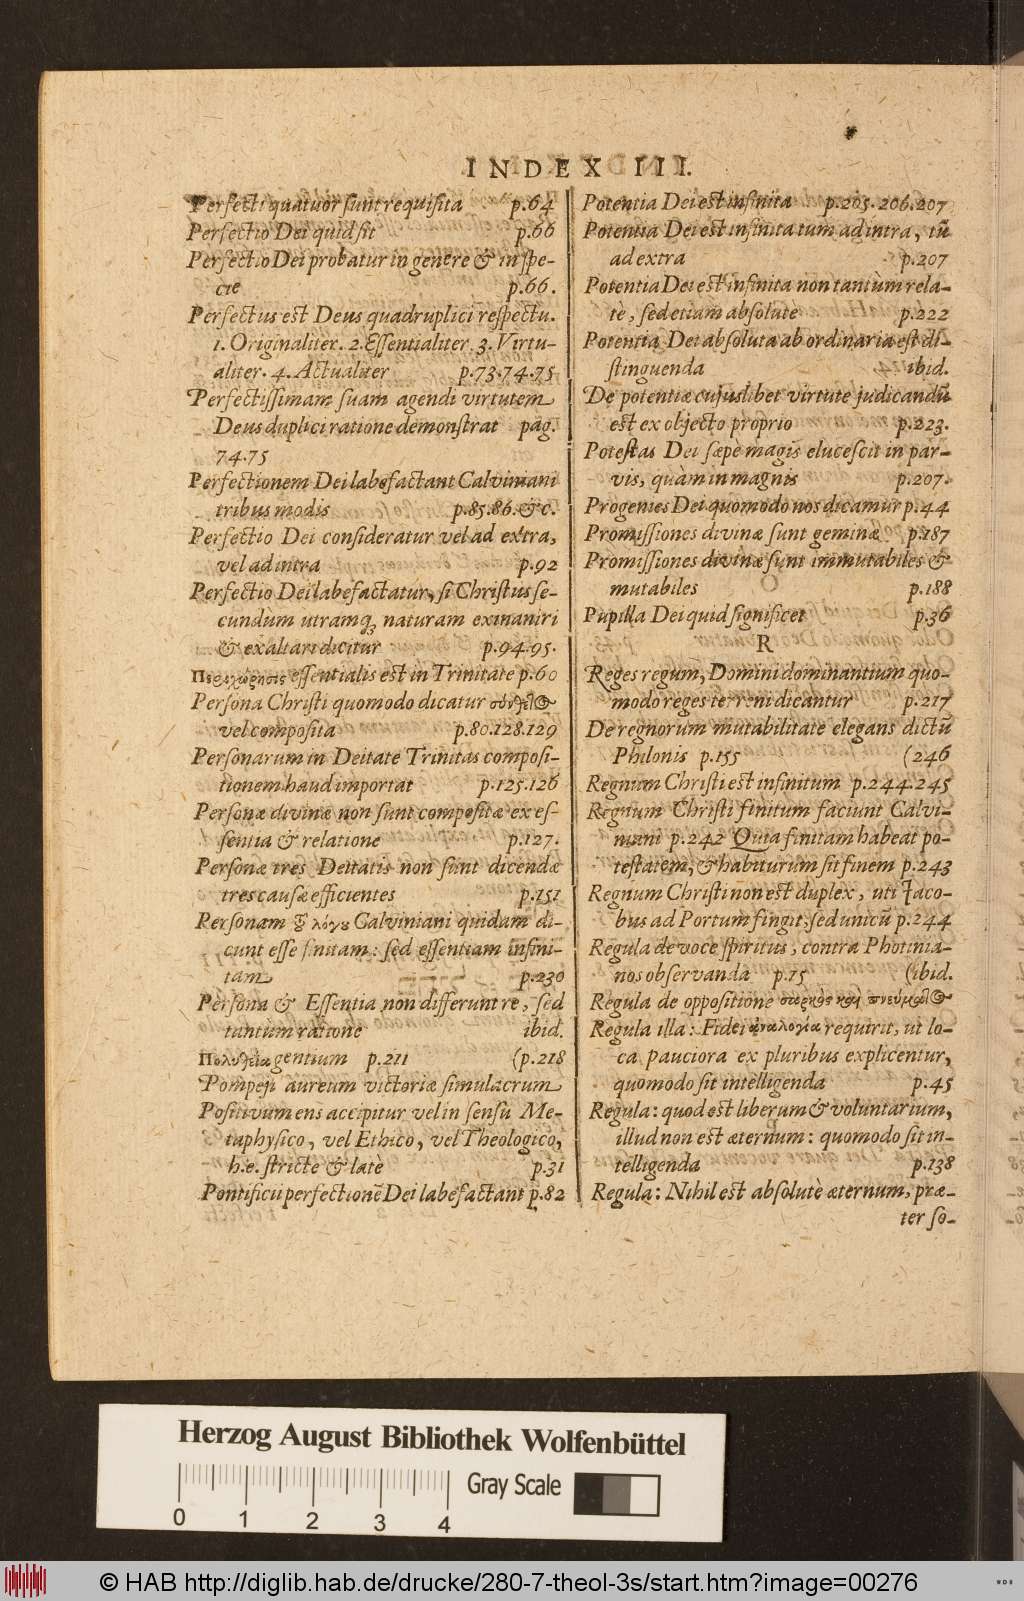 INDEX III.
Perfecti quatuor sunt requisita p.64
Perfectio Dei quid sit p.66
Perfectio Dei probatur in genere & in spe-
cie p.66.
Perfectus est Deus quadruplici respectu.
1. Originaliter. 2. Essentialiter. 3. Virtu-
aliter. 4. Actualiter p.73.74.75
Perfectissimam suam agendi virtutem
Deus duplici ratione demonstrat pag.
74.75
Perfectionem Dei labefactant Calviniani
tribus modis p.85.86.&c.
Perfectio Dei consideratur vel ad extra,
vel ad intra p.92
Perfectio Dei labefactatur, si Christus se-
cundùm utramq; naturam exinaniri
& exaltari dicitur p.94.95.
Περιχώρησις essentialis est in Trinitate p.60
Persona Christi quomodo dicatur σύνθετος
vel composita p.80.128.129
Personarum in Deitate Trinitas composi-
tionem haud importat p.125.126
Personæ divinæ non sunt compositæ ex es-
sentia & relatione p.127.
Personæ tres Deitatis non sunt dicendæ
tres causæ efficientes p.151
Personam τοῦ λόγου Calviniani quidam di-
cunt esse finitam: sed essentiam infini-
tam p.230
Persona & Essentia non differunt re, sed
tantum ratione ibid.
Πολυθεΐα gentium p.211 (p.218
Pompeji aureum victoriæ simulacrum
Positivum ens accipitur vel in sensu Me-
taphysico, vel Ethico, vel Theologico,
h.e. strictè & latè p.31
Pontificii perfectionē Dei labefactant p.82
Potentia Dei est infinita p.205.206.207
Potentia Dei est infinita tum ad intra, tū
ad extra p.207
Potentia Dei est infinita non tantùm rela-
tè, sed etiam absolutè p.222
Potentia Dei absoluta ab ordinaria est di-
stinguenda ibid.
De potentiæ cujuslibet virtute judicandū
est ex objecto proprio p.223.
Potestas Dei sæpè magis elucescit in par-
vis, quàm in magnis p.207.
Progenies Dei quomodo nos dicamur p.44
Promissiones divinæ sunt geminæ p.187
Promissiones divinæ sunt immutabiles &
mutabiles p.188
Pupilla Dei quid significet p.36
R
Reges regum, Domini dominantium quo-
modo reges terreni dicantur p.217
De regnorum mutabilitate elegans dictū
Philonis p.155 (246
Regnum Christi est infinitum p.244.245
Regnum Christi finitum faciunt Calvi-
niani p.242 Quia finitam habeat po-
testatem, & habiturum sit finem p.243
Regnum Christi non est duplex, uti Jaco-
bus ad Portum fingit; sed unicū p.244
Regula de voce spiritus, contra Photinia-
nos observanda p.15 (ibid.
Regula de oppositione σαρκὸς καὶ πνεύματος
Regula illa: Fidei ἀναλογία requirit, ut lo-
ca pauciora ex pluribus explicentur,
quomodo sit intelligenda p.45
Regula: quod est liberum & voluntarium,
illud non est æternum: quomodo sit in-
telligenda p.138
Regula: Nihil est absolutè æternum, præ-
ter so-
Herzog August Bibliothek Wolfenbüttel
Gray Scale
0 1 2 3 4
© HAB http://diglib.hab.de/drucke/280-7-theol-3s/start.htm?image=00276